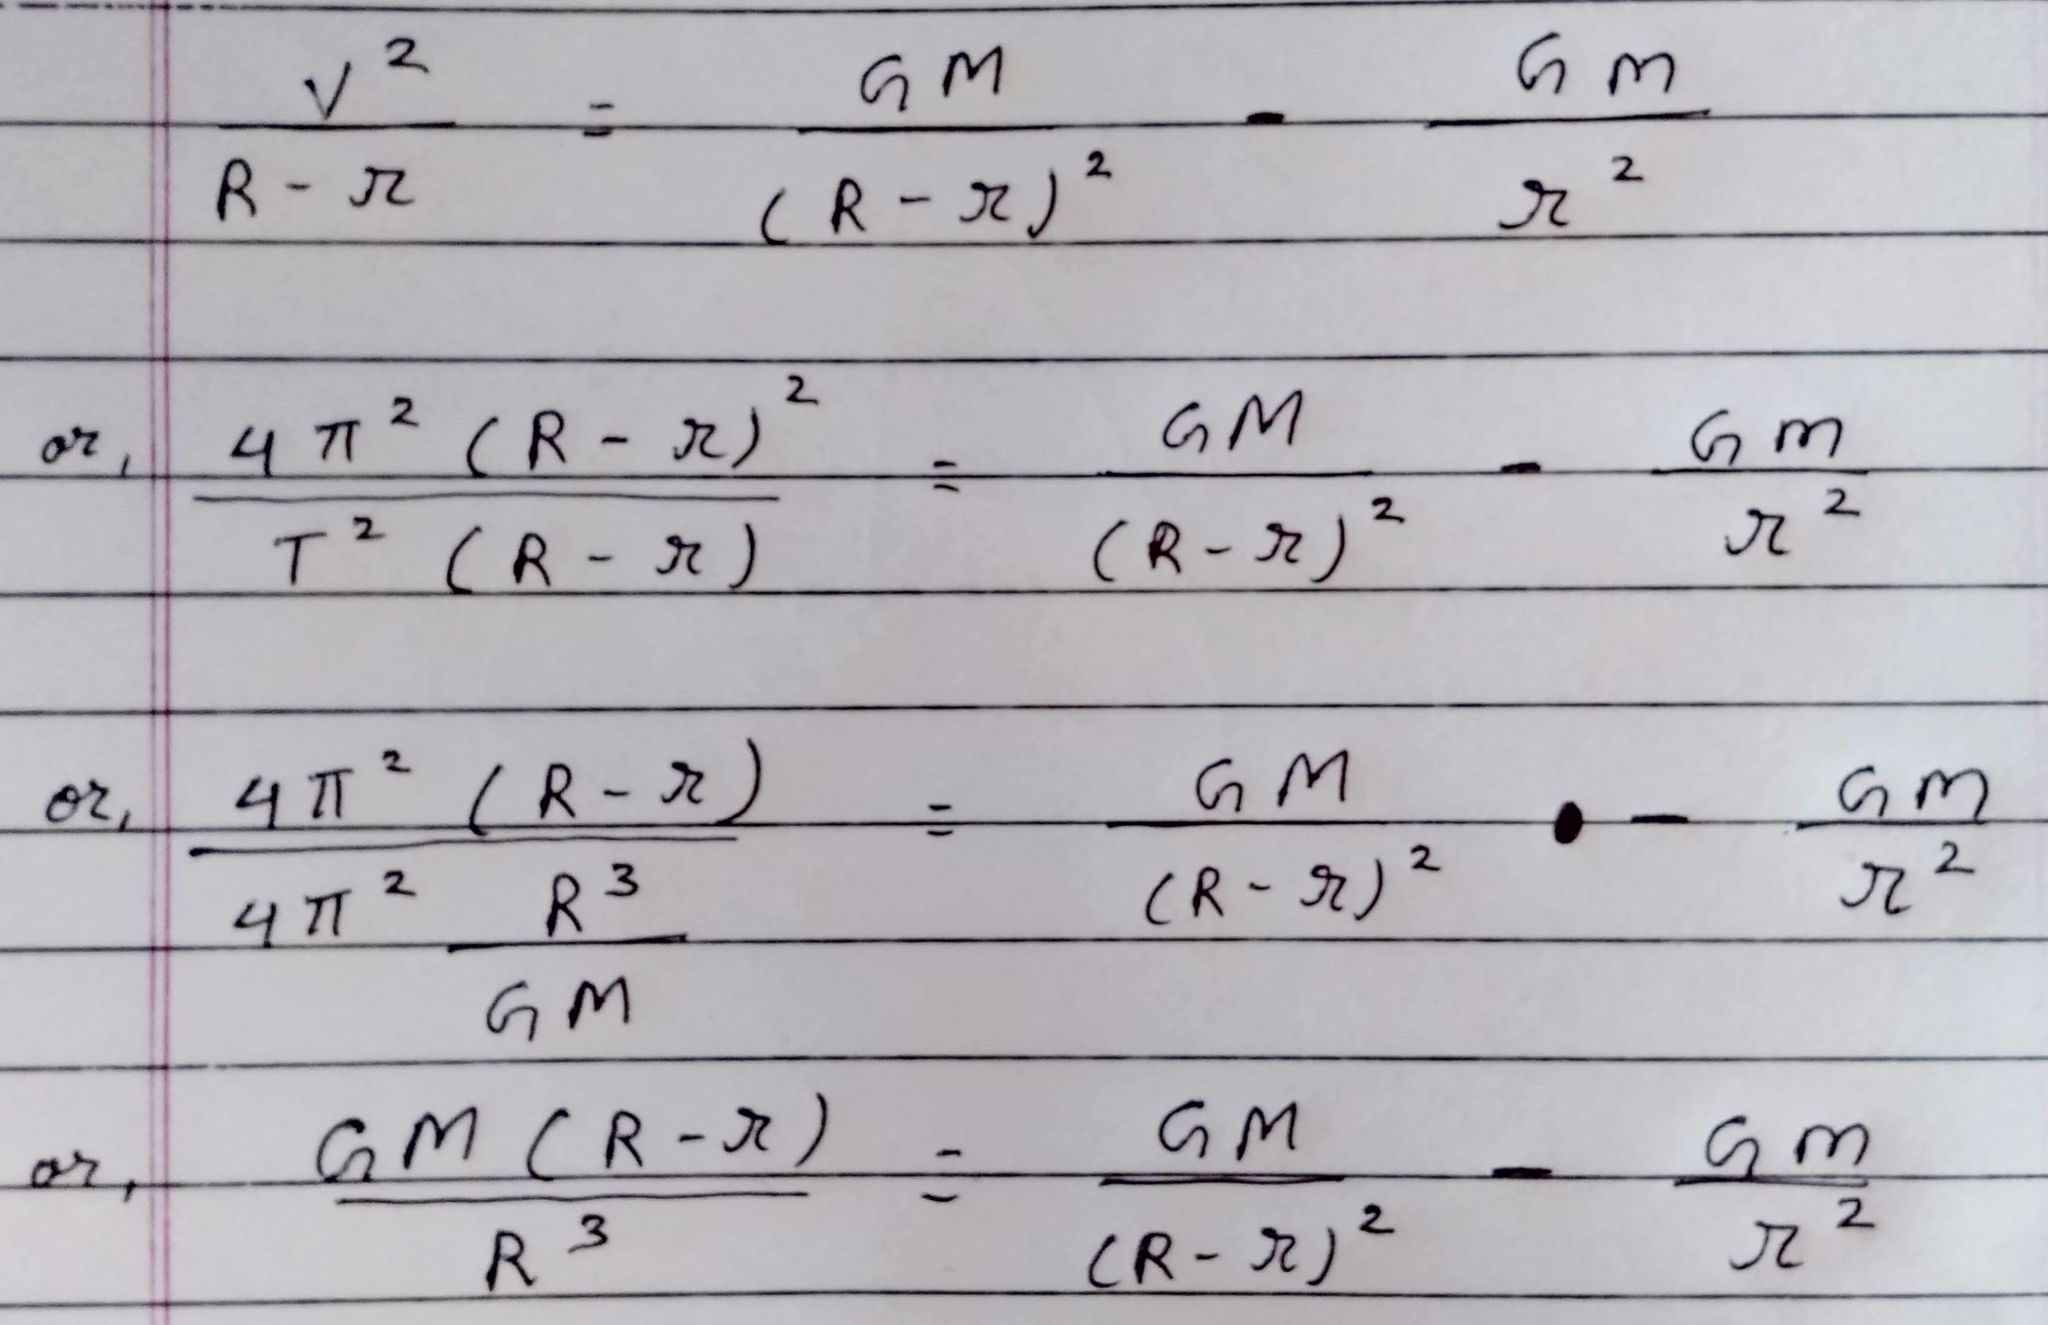 v² / (R - r) = GM / (R - r)² - Gm / r²
or, 4π² (R - r)² / T² (R - r) = GM / (R - r)² - Gm / r²
or, 4π² (R - r) / 4π² R³/GM = GM / (R - r)² - Gm / r²
or, GM (R - r) / R³ = GM / (R - r)² - Gm / r²